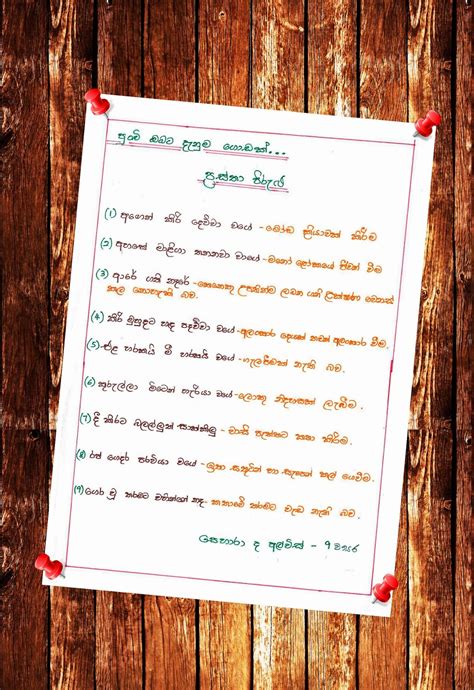 පුංචි ඔබට දැනුම ගොඩක්...
ප්‍රස්තා පිරුළු
(1) අගෙන් කිරි දෙව්වා වගේ - මෝඩ ක්‍රියාවක් කිරීම
(2) අහසේ මාළිගා තනනවා වාගේ - මනෝ ලෝකයේ ජීවත් වීම
(3) ආරේ ගති නෑරේ - කෙනෙකු උපතින්ම ලබන ගති ලක්ෂණ වෙනස්
කල නොහැකි බව.
(4) කිරි මුහුදට හඳ පෑව්වා වගේ - අලංකාර දෙයක් තවත් අලංකාර වීම.
(5) එළ හරකයි මී හරකයි වගේ - ගැලපීමක් නැති බව.
(6) කුරුල්ලා මිටෙන් හැරියා වගේ - ලොකු නිදහසක් ලැබීම.
(7) දී කිරට බලල්ලුත් සාක්කිලු - වාසි පැත්තට කතා කිරීම.
(8) රජ ගෙදර පරවියා වගේ - ඉතා සතුටින් හා සැපෙන් කල් ගෙවීම.
(9) ගොර වූ තරමට වහින්නේ නැත - කතාවේ තරමට වැඩ නැති බව.
සෙහාරා ද අල්විස් - 9 වසර